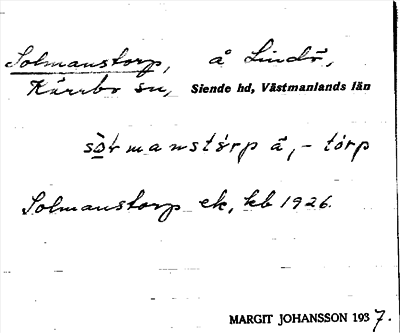 Solmanstorp, å Lindö,
Kärrbo sn, Siende hd, Västmanlands län
manstórp å, - tórp
Solmanstorp ek, kb 1926.
MARGIT JOHANSSON 1937.